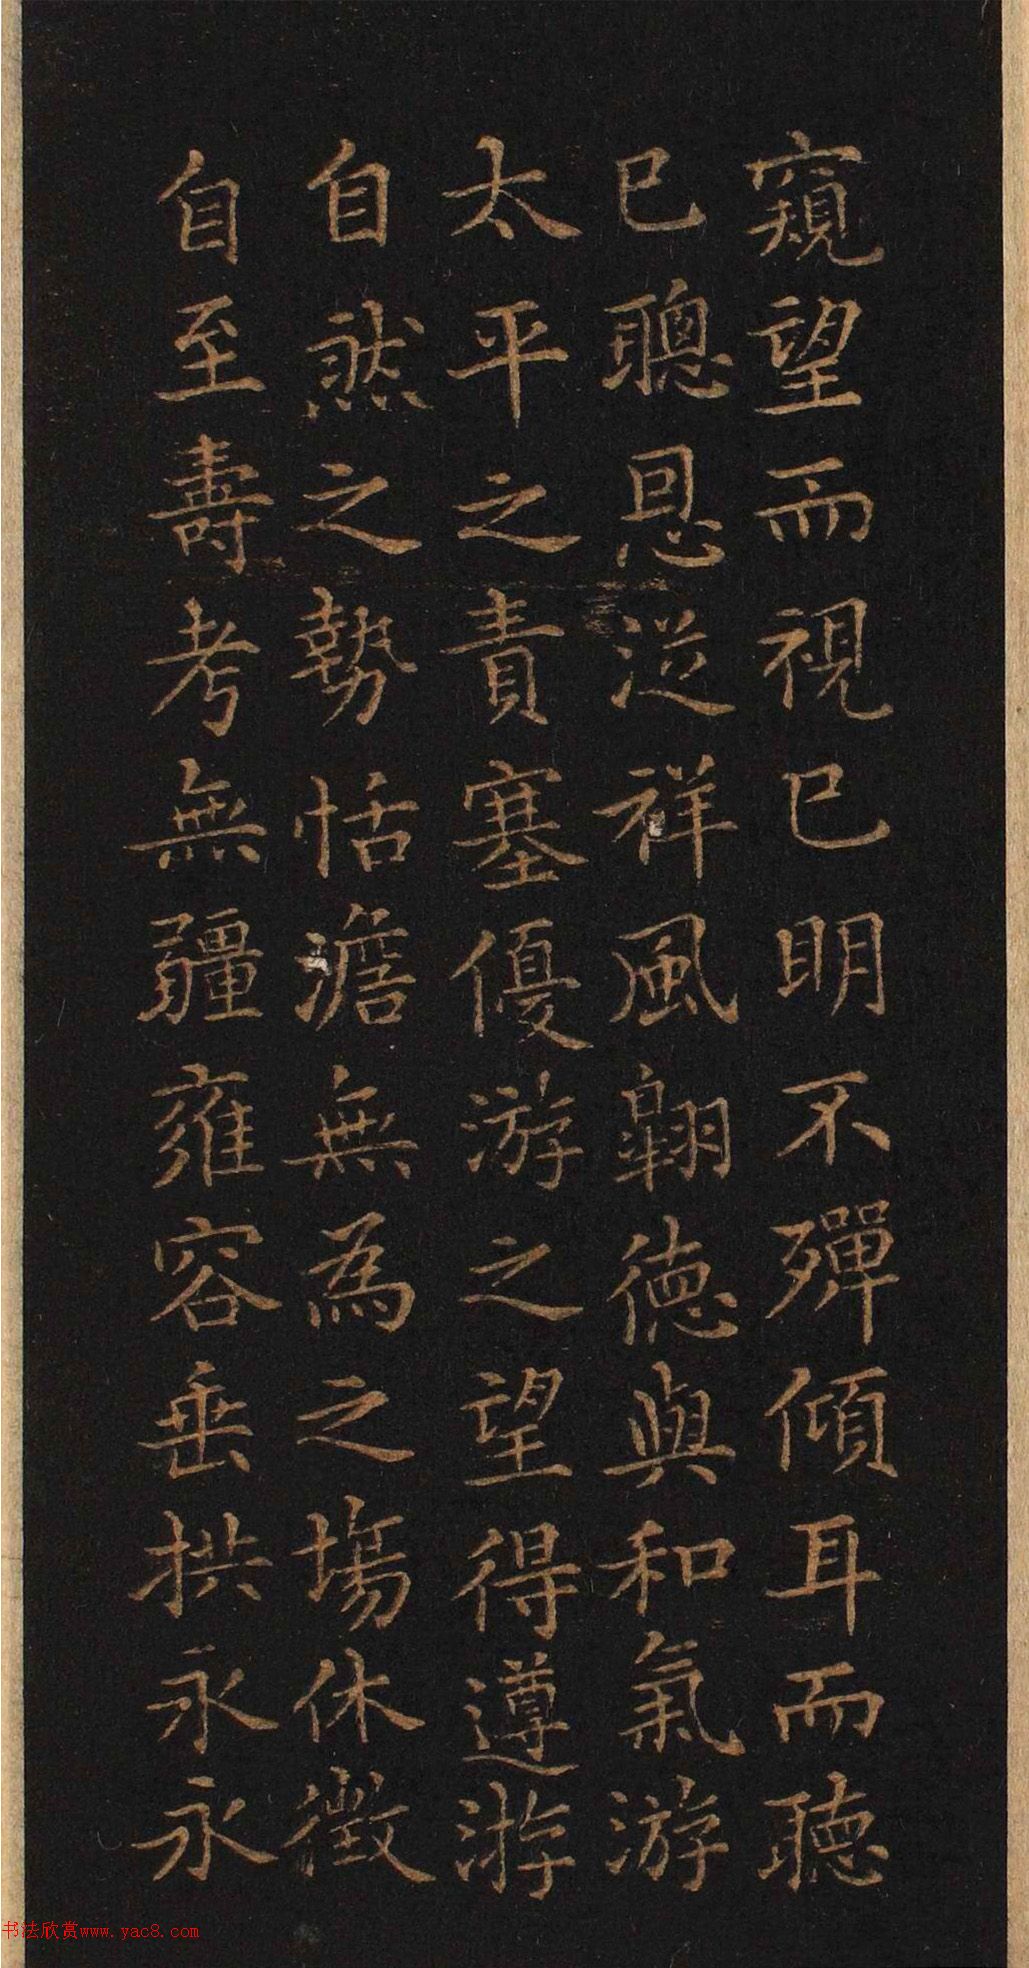 窺望而視已明不殫傾耳而聽
已聰恩従祥風翺徳與和氣游
太平之責塞優游之望得遵游
自然之勢恬澹無為之塲休徵
自至壽考無疆雍容垂拱永永
书法欣赏www.yac8.com